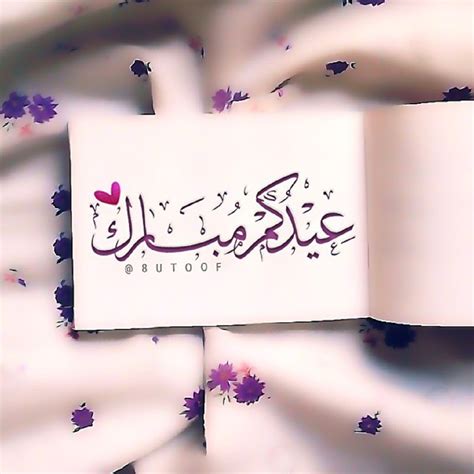 عِيدُكُمْ مُبَارَك
@8UTOOF